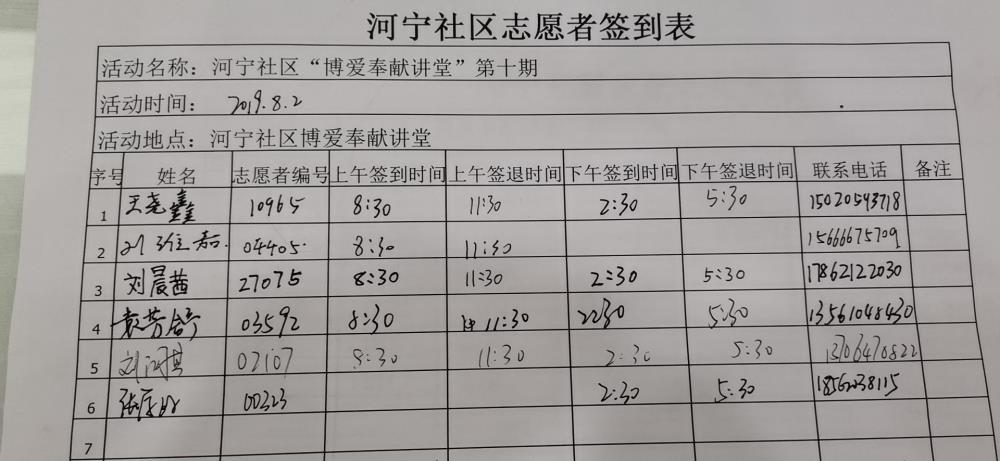 河宁社区志愿者签到表
活动名称：河宁社区“博爱奉献讲堂”第十期
活动时间： 2019.8.2
活动地点：河宁社区博爱奉献讲堂
序号 姓名 志愿者编号 上午签到时间 上午签退时间 下午签到时间 下午签退时间 联系电话 备注
1 王尧鑫 10965 8:30 11:30 2:30 5:30 15020593718
2 04405 8:30 11:30 15666675709
3 刘晨茜 27075 8:30 11:30 2:30 5:30 17862122030
4 03592 8:30 11:30 2:30 5:30 13561048430
5 02107 8:30 11:30 2:30 5:30 13706470822
6 00323 2:30 5:30 18562038115
7